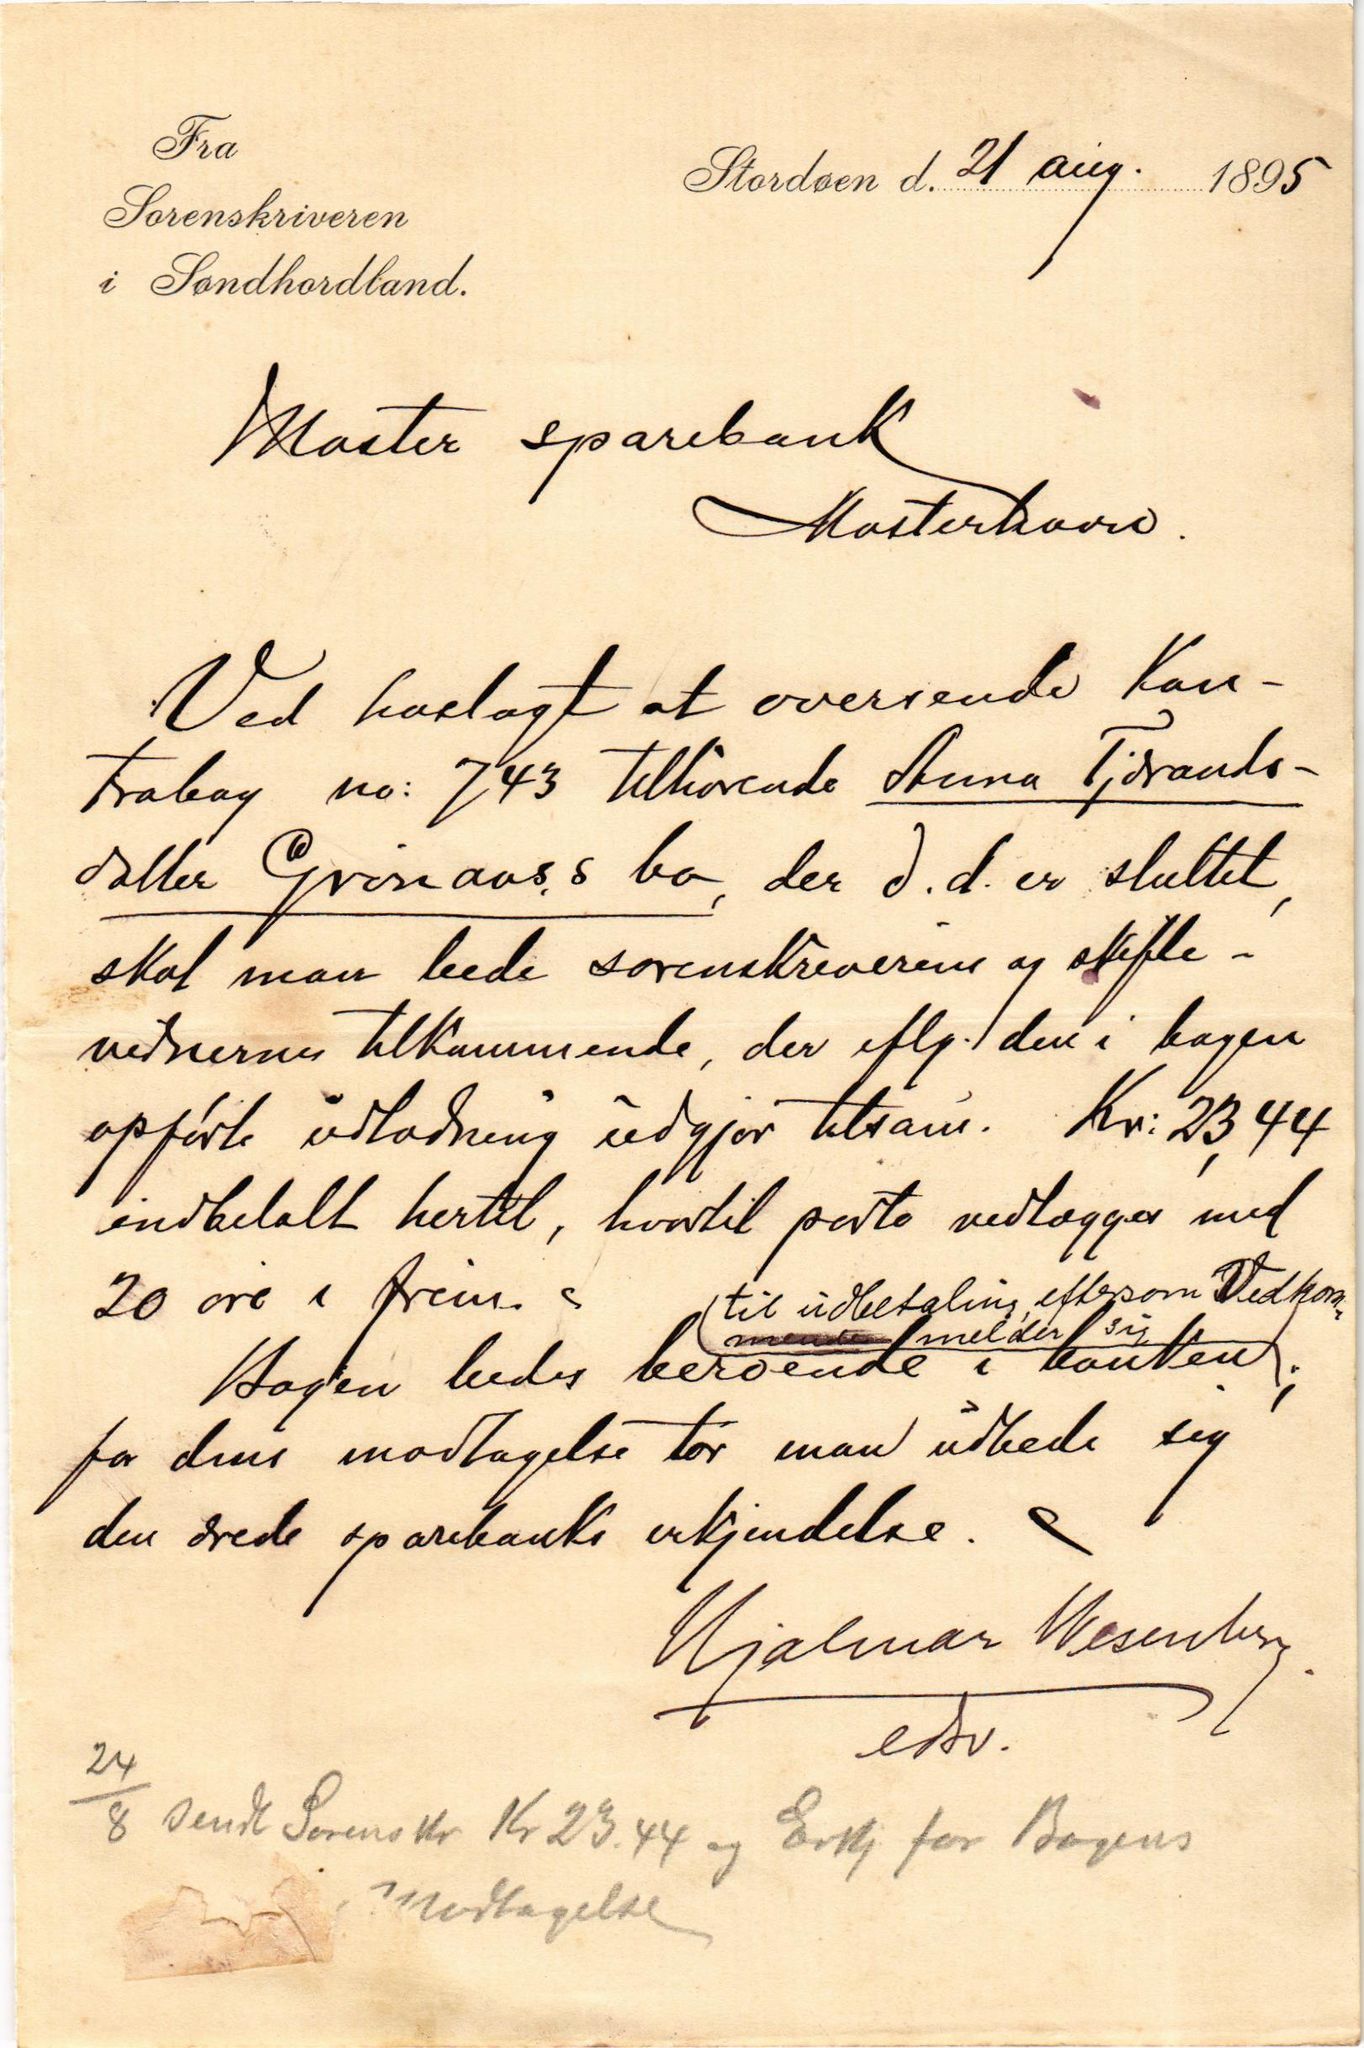 Fra
Sorenskriveren
i Søndhordland.
Stordøen d. 21 aug. 1895
Moster sparebank
Mosterhavn.
Ved hoslagt at oversende Kon-
trabog no: 743 tilhørende Anna Tjørands-
datter Grönaas,s bo, der d.d. er sluttet,
skal man bede sorenskriverens og skifte-
vidnernes tilkommende, der iflg. den i bogen
opførte udlodning udgjør tilsam. Kr: 23,44
indbetalt hertil, hvortil porto vedlægges med
20 øre i frim.
(til udbetaling, eftersom Vedkom-
mende melder sig
Bogen bedes beroende i banken);
for dens modtagelse tør man udbede sig
den ærede sparebanks erkjendelse.
Hjalmar Wesenberg.
edsv.
24/8 sendt Sorenskr Kr 23.44 og Erkj for Bogens
Modtagelse